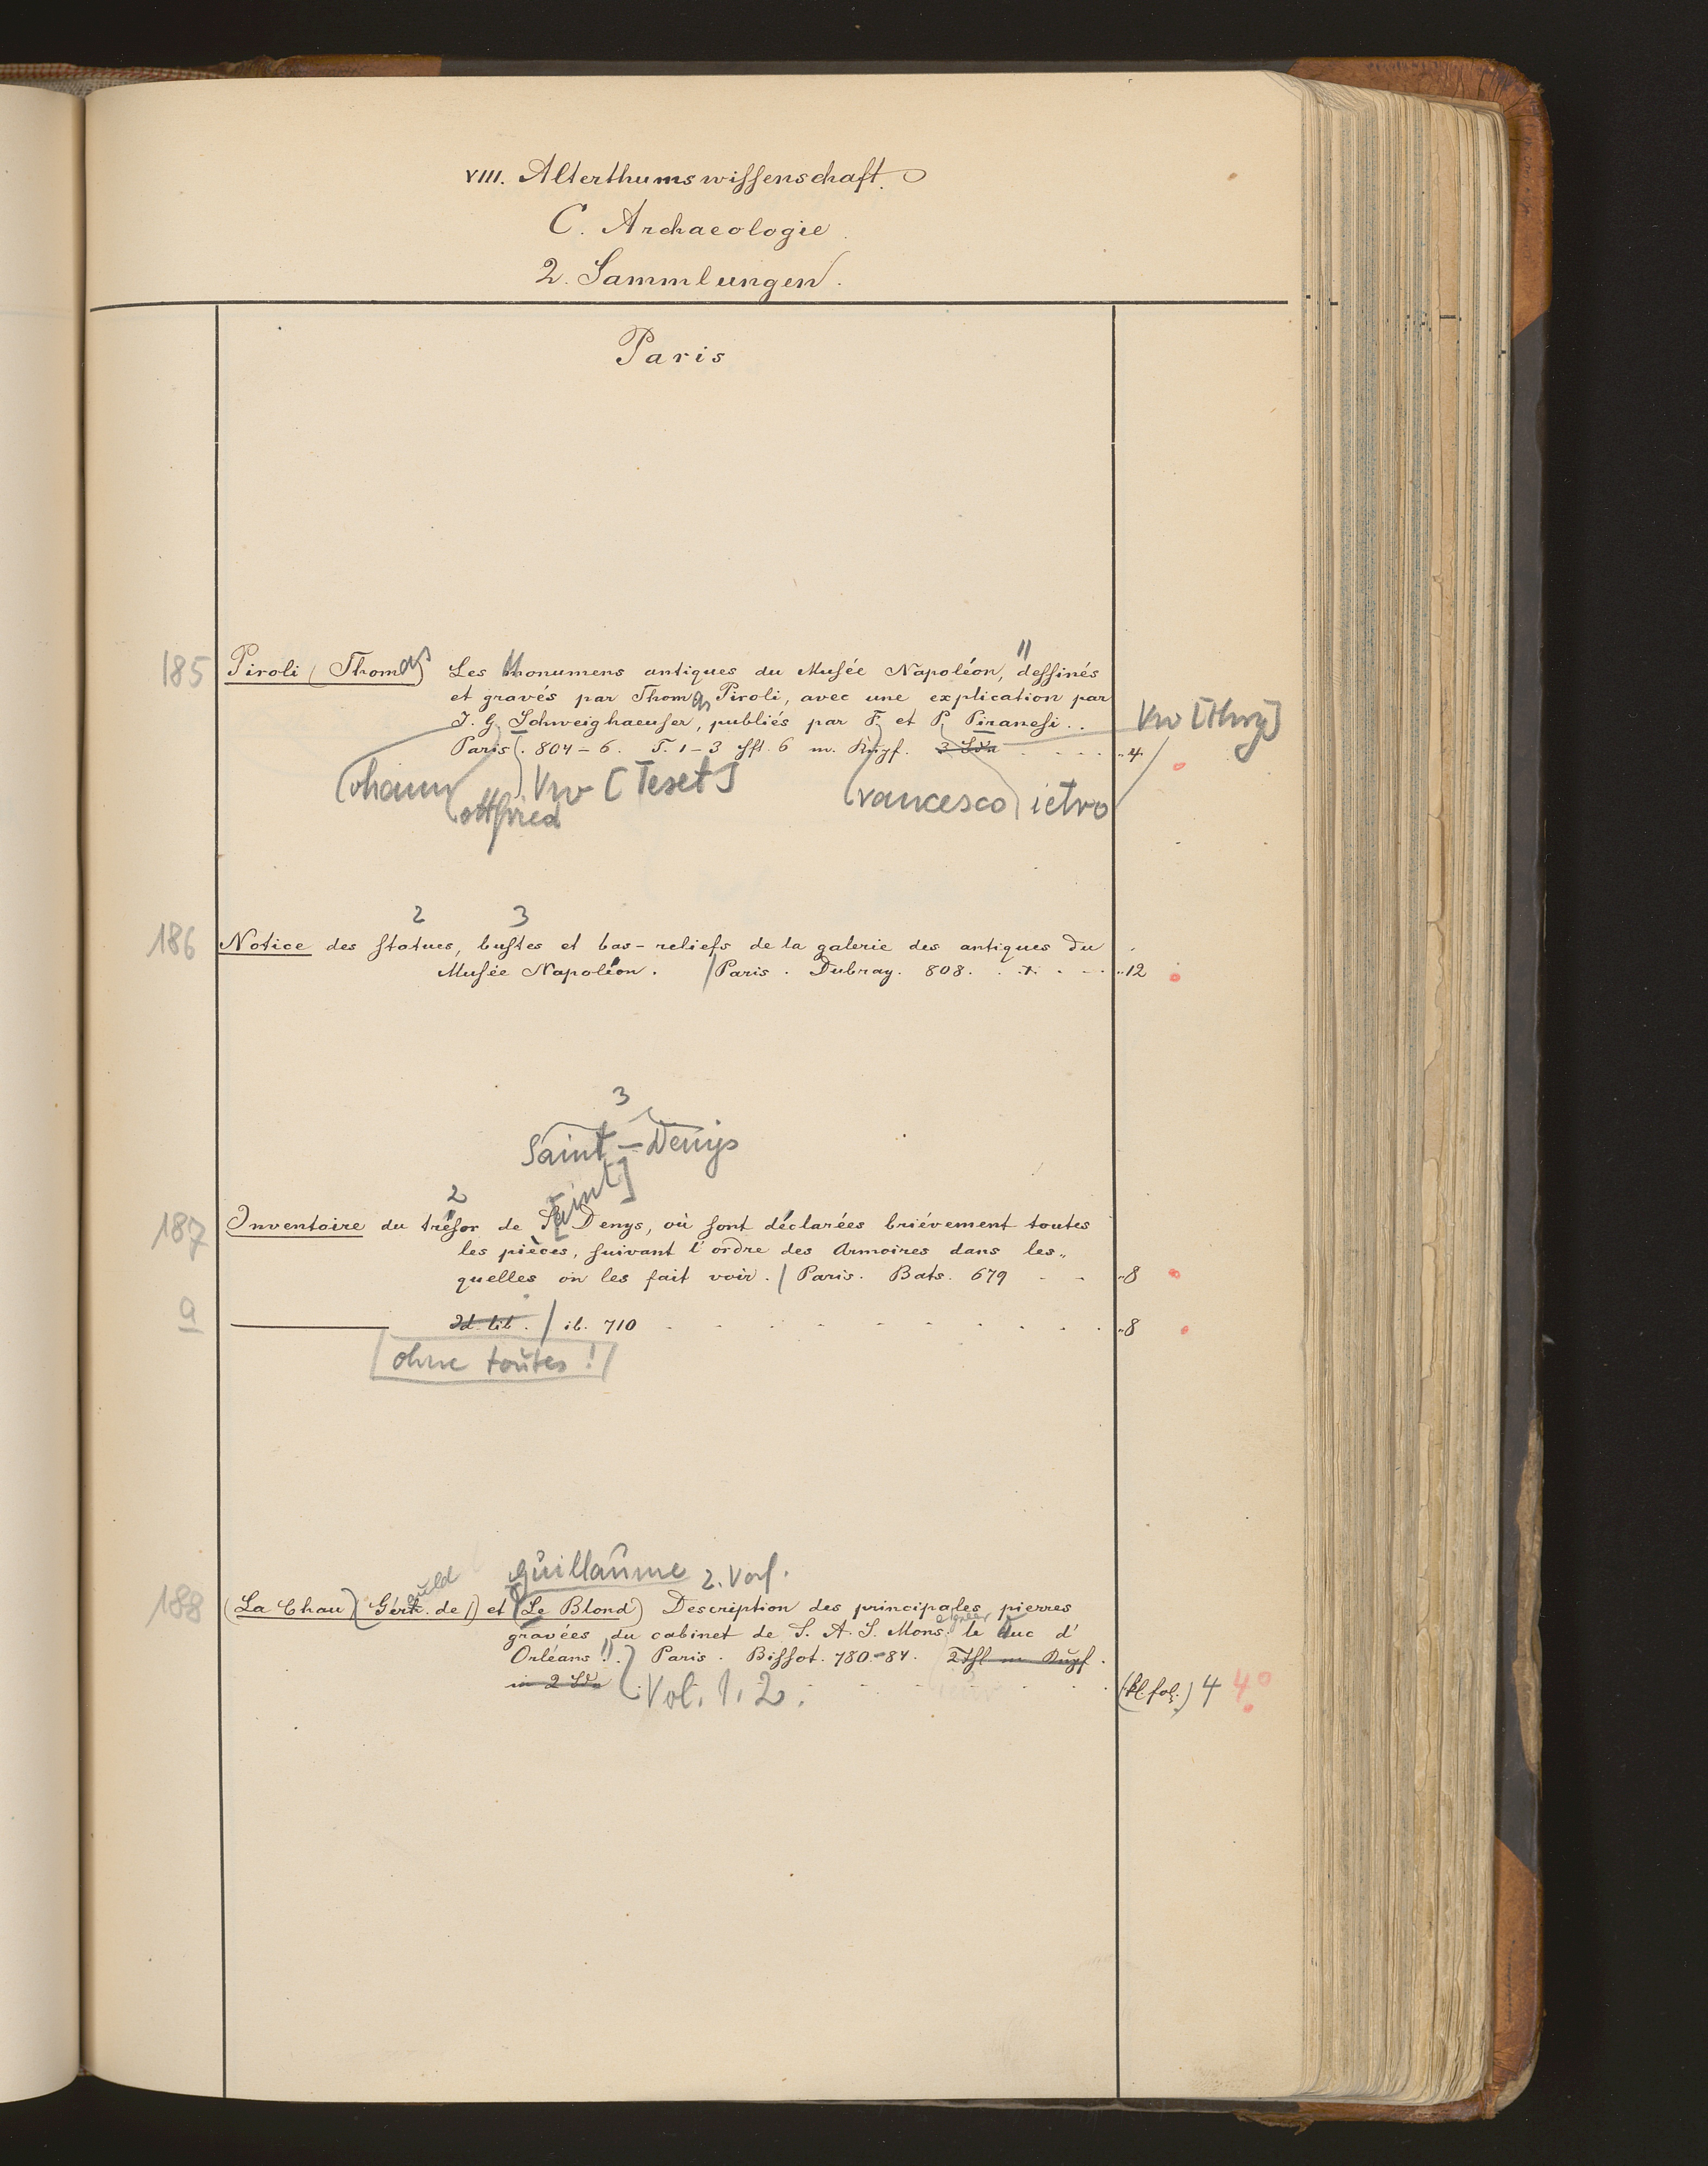 VIII. Alterthumswissenschaft.
C. Archaeologie.
2. Sammlungen.
Paris
185 Piroli (Thomas) Les Monumens antiques du Musée Napoléon, dessinés
et gravés par Thomas Piroli, avec une explication par
J. G. Schweighaeuser, publiés par F. et P. Piranesi.. Vw [Hrsg]
Paris. 804-6. T. 1-3 4 m. Kupf. 3 Bde "4.
(ohann ottfried Vw [Teset] rancesco ietro
2 3
186 Notice des statues, bustes et bas-reliefs de la galerie des antiques du
Musée Napoléon. / Paris. Dubray. 808. "12
3
Saint-Denys
2 [aint]
187 Inventaire du trésor de St Denys, où sont déclarées briévement toutes
les pièces, suivant l'ordre des Armoires dans les"
quelles on les fait voir. / Paris. Bats. 679 "8
a Id. lib. / ib. 710 "8
ohne toutes!
Guillaume 2. Verf.
188 (La Chau) (Gér. de) et (Le Blond) Description des principales pierres
gravées du cabinet de S. A. S. Mons. le Duc d'
Orléans. Paris. Pissot. 780-84. 2 m Kupf.
in 2 Bde Vol. 1. 2. (kl. fol.) 4 4°